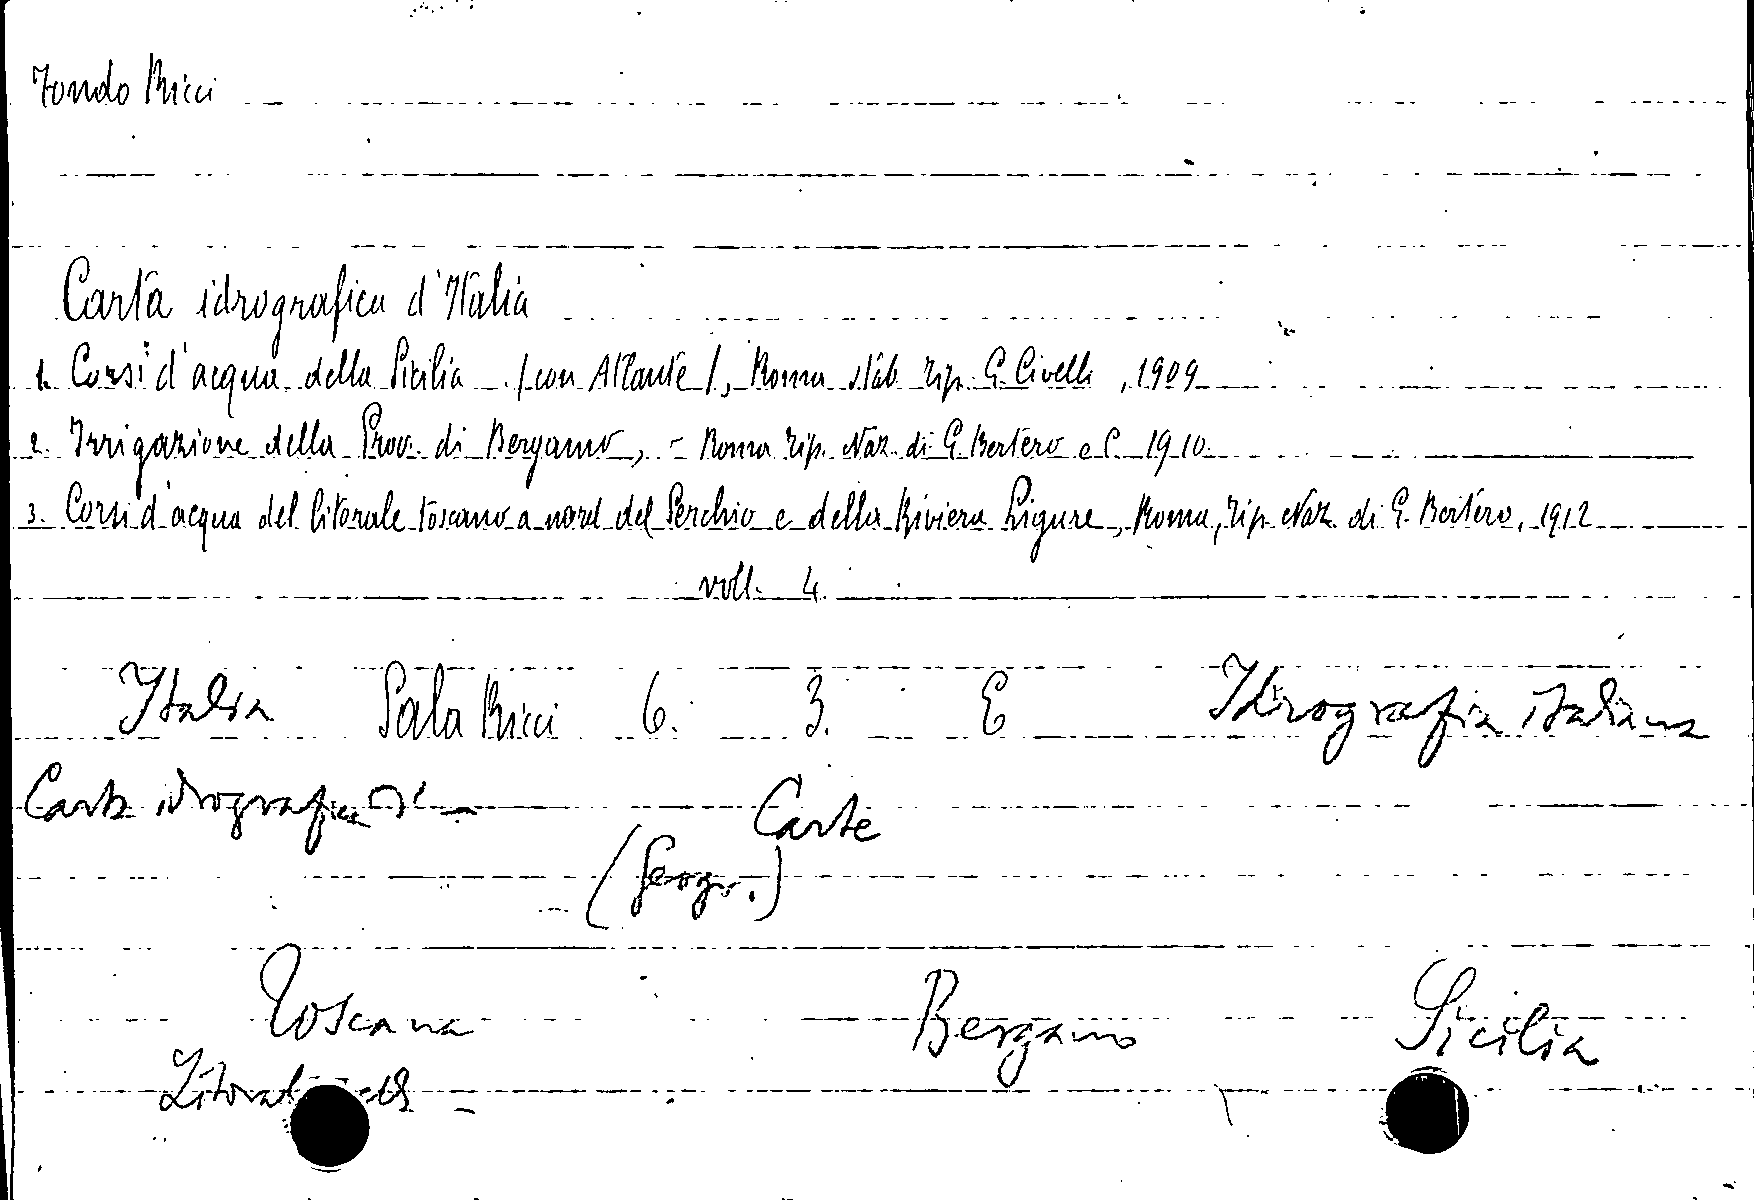 Fondo Ricci
Carta idrografica d'Italia
1. Corsi d'acqua della Sicilia (con Atlante), Roma stab. tip. G. Civelli, 1909
2. Irrigazione della Prov. di Bergamo, - Roma tip. Naz. di G. Bertero e C. 1910.
3. Corsi d'acqua del litorale toscano a nord del Serchio e della Riviera Ligure, Roma, tip. Naz. di G. Bertero, 1912
voll. 4.
Italia Sala Ricci 6. 3. E Idrografia italiana
Carta idrografica d' — Carte
(geogr.)
Toscana Bergamo Sicilia